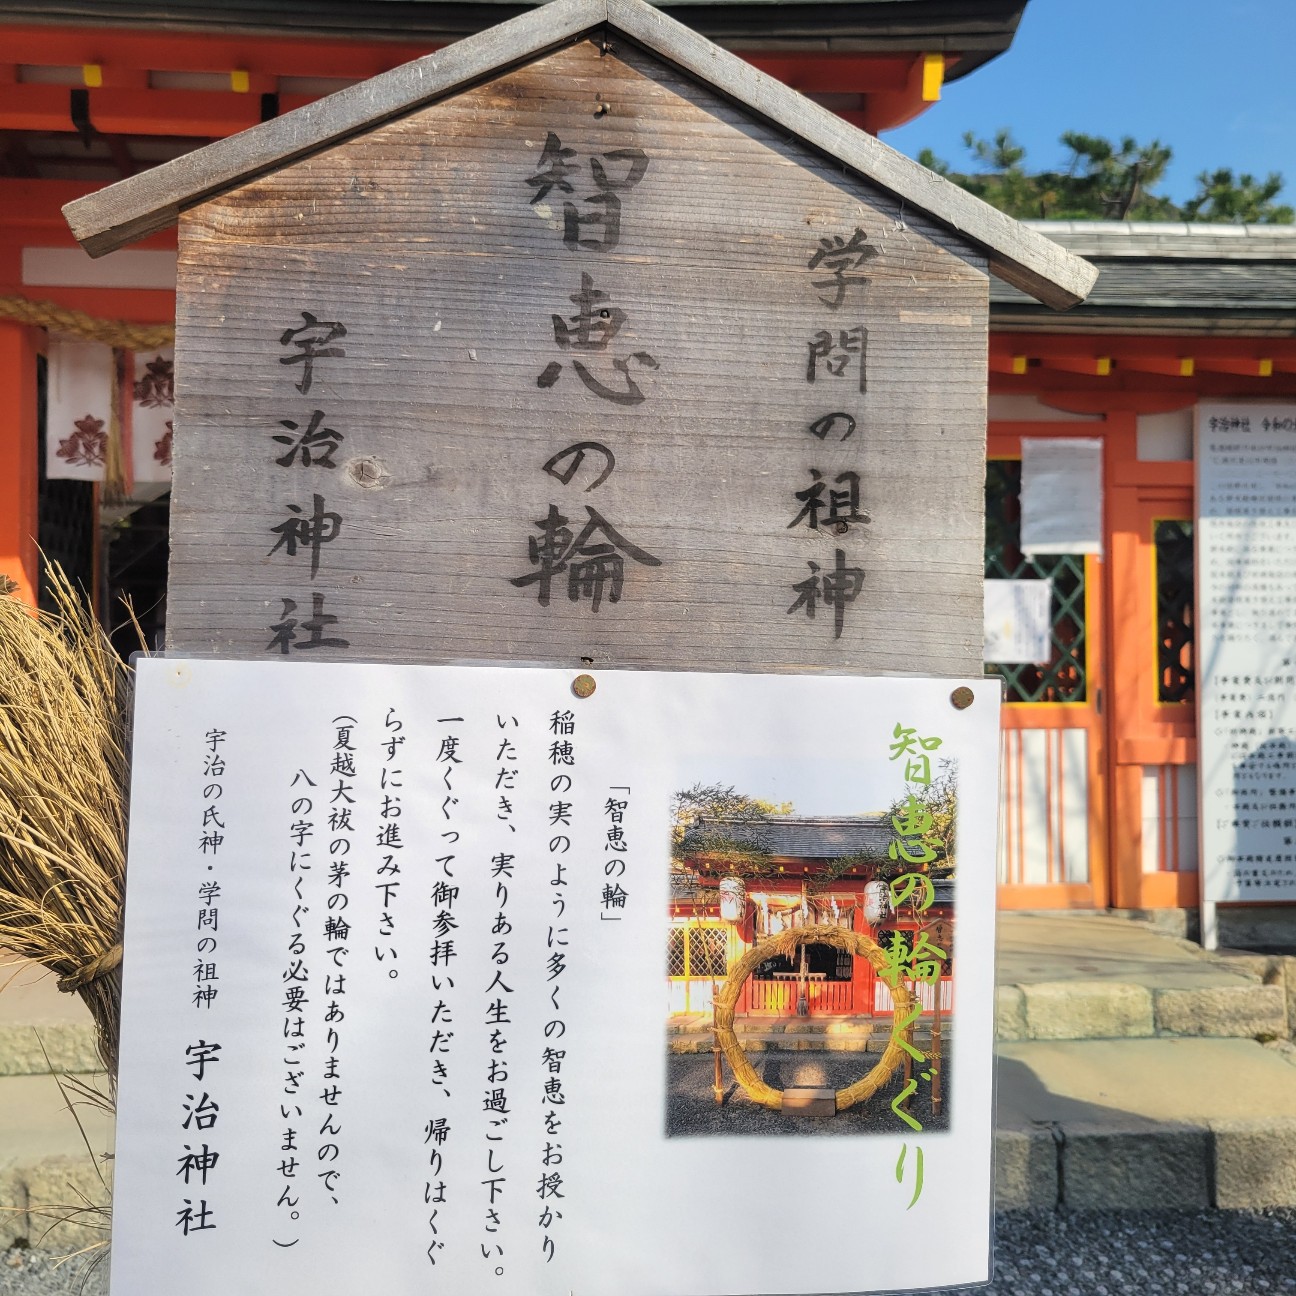 学問の祖神
智恵の輪
宇治神社
智恵の輪くぐり
「智恵の輪」
稲穂の実のように多くの智恵をお授かり
いただき、実りある人生をお過ごし下さい。
一度くぐって御参拝いただき、帰りはくぐ
らずにお進み下さい。
(夏越大祓の茅の輪ではありませんので、
八の字にくぐる必要はございません。)
宇治の氏神・学問の祖神 宇治神社
宇治神社 令和の